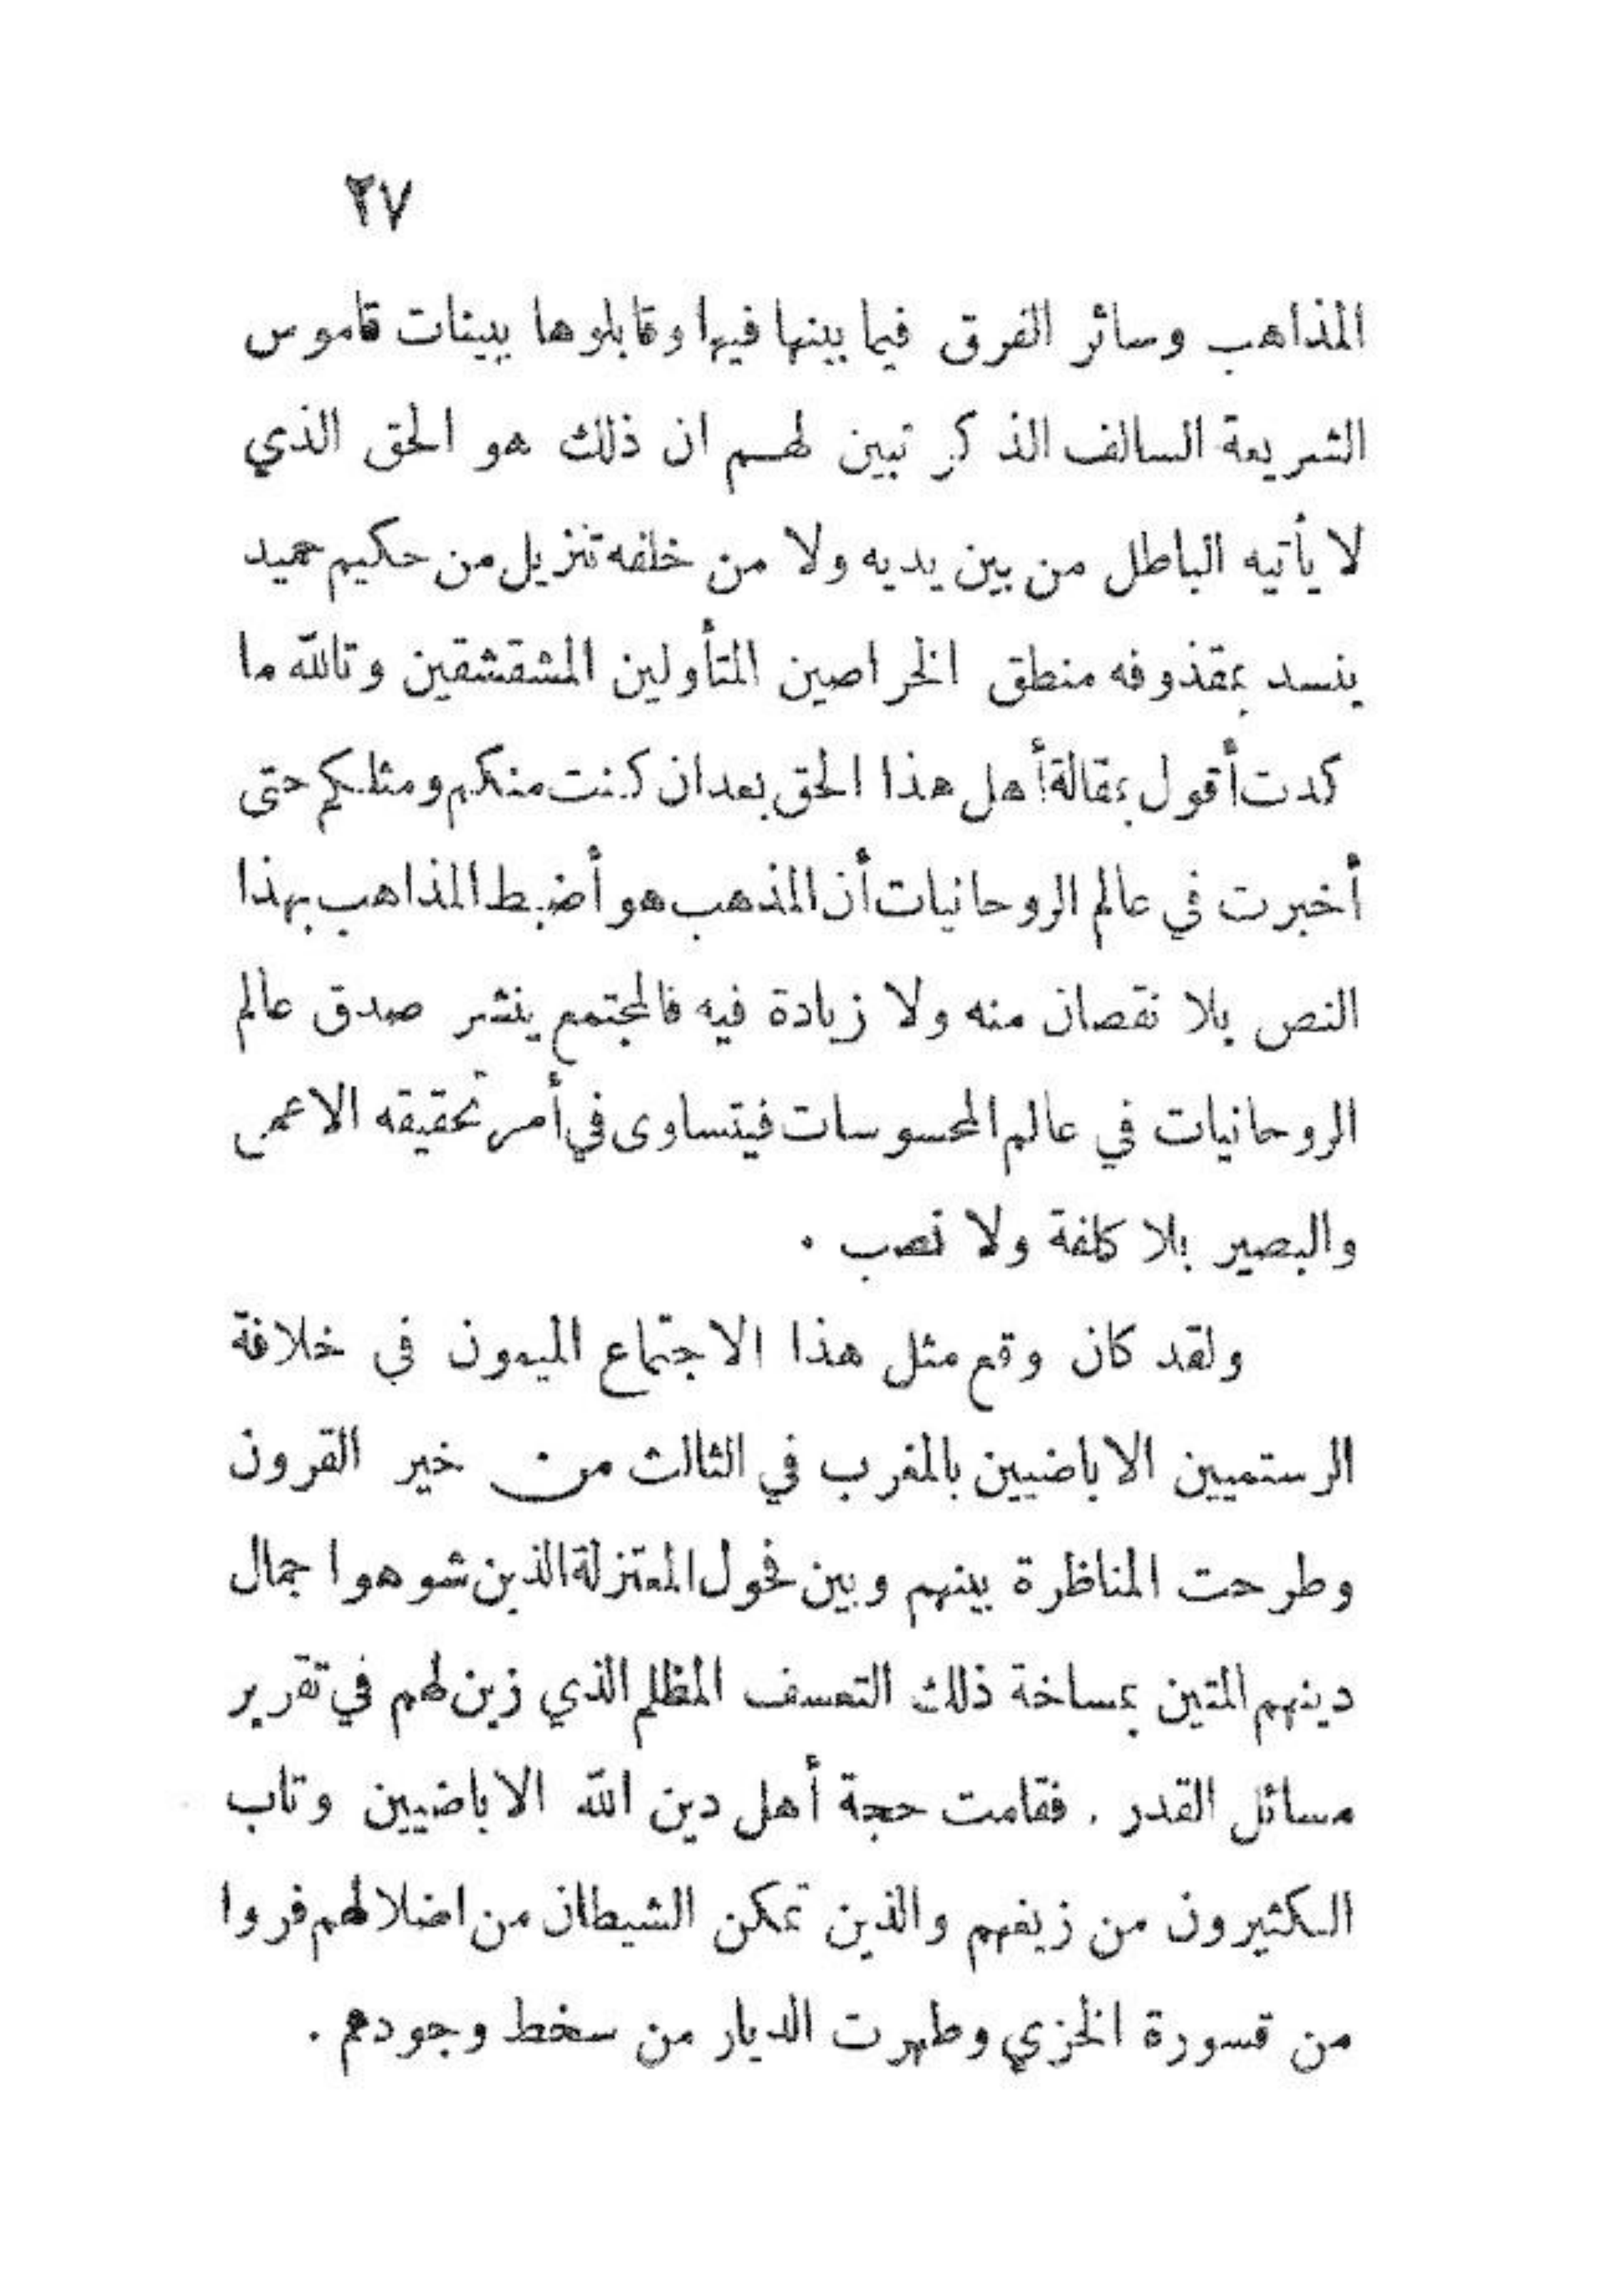 ٢٧
المذاهب وسائر الفرق فيما بينها فيها وقابلوها ببينات قاموس
الشريعة السالف الذكر تبين لهم ان ذلك هو الحق الذي
لا يأتيه الباطل من بين يديه ولا من خلفه تنزيل من حكيم حميد
ينسد بمقذوفه منطق الخراصين المتأولين المشقشقين وتالله ما
كدت أقول بمقالة أهل هذا الحق بعد ان كنت منكم ومثلكم حتى
أخبرت في عالم الروحانيات أن المذهب هو أضبط المذاهب بهذا
النص بلا نقصان منه ولا زيادة فيه فالمجتمع ينشر صدق عالم
الروحانيات في عالم المحسوسات فيتساوى في أمر تحقيقه الاعمى
والبصير بلا كلفة ولا نصب .
ولقد كان وقع مثل هذا الاجتماع الميمون في خلافة
الرستميين الاباضيين بالمغرب في الثالث من خير القرون
وطرحت المناظرة بينهم وبين فحول المعتزلة الذين شوهوا جمال
دينهم المتين بمساخة ذلك التعسف المظلم الذي زين لهم في تقرير
مسائل القدر . فقامت حجة أهل دين الله الاباضيين وتاب
الكثيرون من زيغهم والذين تمكن الشيطان من اضلالهم فروا
من قسورة الخزي وطهرت الديار من سخط وجودهم .